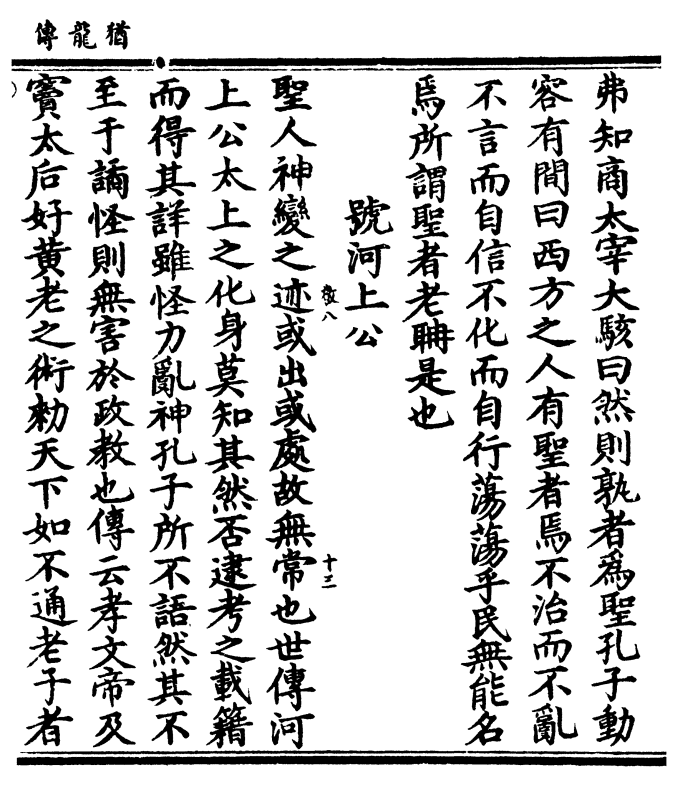 猶龍傳
弗知商太宰大駭曰然則孰者爲聖孔子動
容有間曰西方之人有聖者焉不治而不亂
不言而自信不化而自行蕩蕩乎民無能名
焉所謂聖者老聃是也
號河上公
聖人神變之迹或出或處故無常也世傳河
敬八
十三
上公太上之化身莫知其然否逮考之載籍
而得其詳雖怪力亂神孔子所不語然其不
至于譎怪則無害於政教也傳云孝文帝及
竇太后好黄老之術勑天下如不通老子者